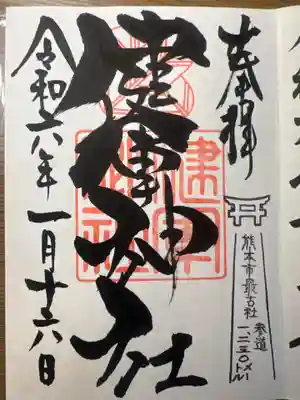 奉拝
熊本市最古社
参道
一、二三〇メートル
健軍神社
健軍神社
令和六年一月十六日